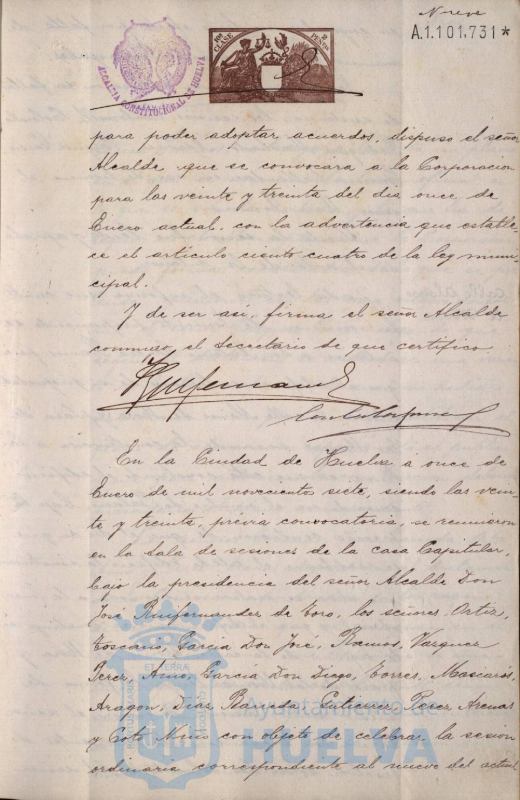 Nueve
A.1.101,731*
10ª CLASE
2 PESETAS
ALCALDIA CONSTITUCIONAL DE HUELVA
para poder adoptar acuerdos, dispuso el señor
Alcalde que se convocara a la Corporacion
para las veinte y treinta del dia once de
Enero actual, con la advertencia que estable-
ce el articulo ciento cuatro de la ley muni-
cipal.
Y de ser asi, firma el señor Alcalde
conmigo el Secretario de que certifico
En la Ciudad de Huelva á once de
Enero de mil novecientos siete, siendo las vein-
te y treinta, previa convocatoria, se reunieron
en la Sala de sesiones de la casa Capitular,
bajo la presidencia del señor Alcalde Don
José Ruifernandez de Toro, los señores Ortiz,
Toscano, Garcia Don José, Ramos, Vazquez
Perez, Amo, Garcia Don Diego, Torres, Mascarós,
Aragon, Diaz Barreda, Gutierrez, Perez Arenas
y Coto Mino con objeto de celebrar la sesion
ordinaria correspondiente al nueve del actual
Ayuntamiento de
HUELVA